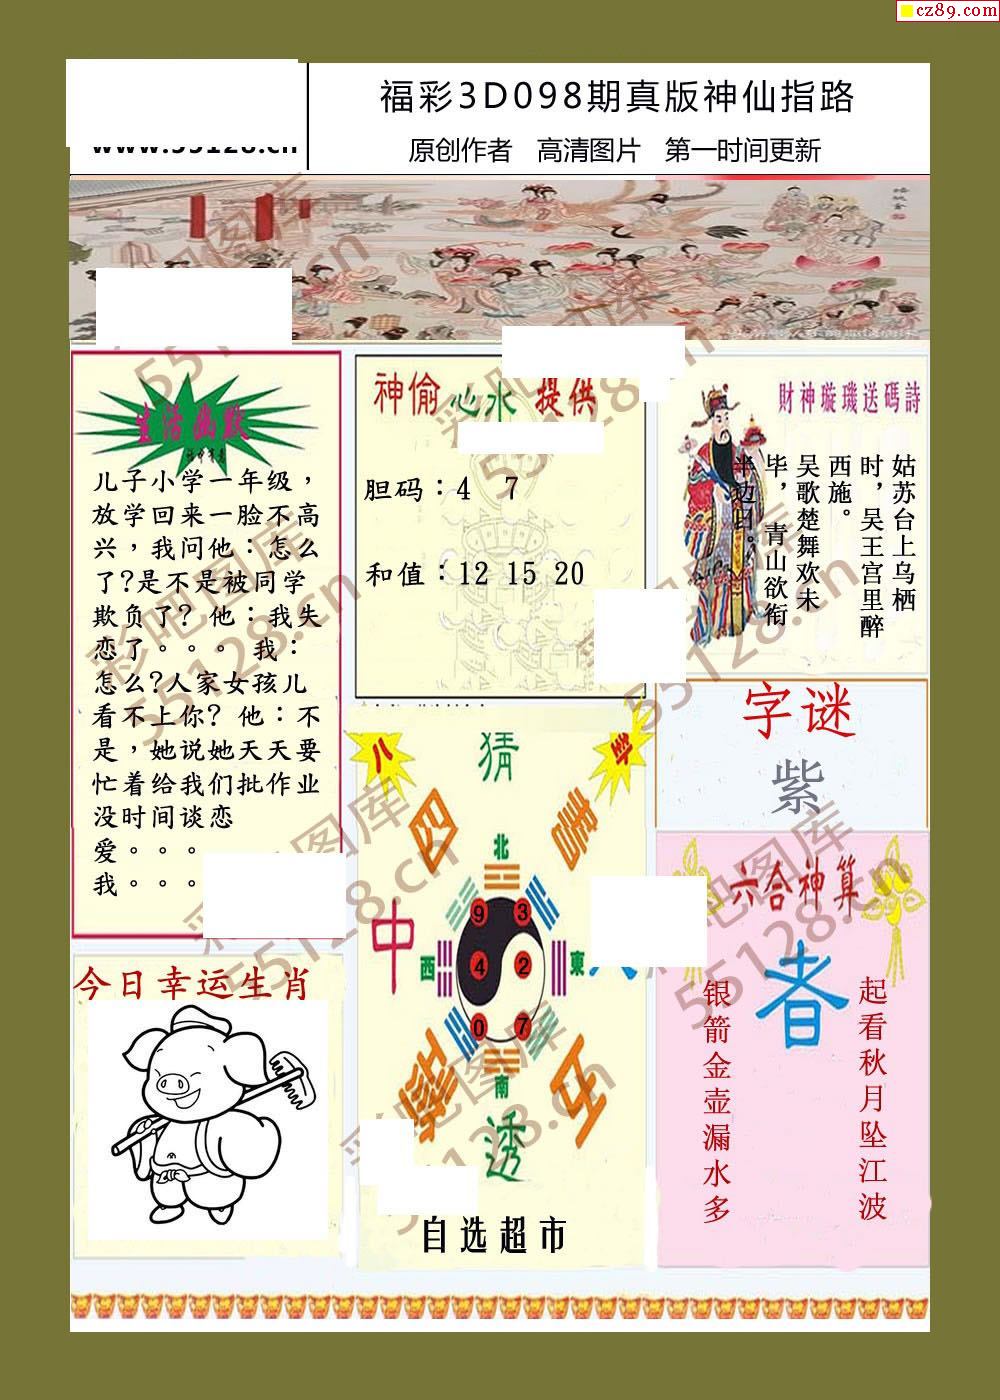 cz89.com
www.55128.cn
福彩3D098期真版神仙指路
原创作者 高清图片 第一时间更新
生活幽默
儿子小学一年级，
放学回来一脸不高
兴，我问他：怎么
了?是不是被同学
欺负了? 他：我失
恋了。。。 我：
怎么?人家女孩儿
看不上你? 他：不
是，她说她天天要
忙着给我们批作业
没时间谈恋
爱。。。
我。。。
神偷心水提供
胆码：4 7
和值：12 15 20
財神璇璣送碼詩
姑苏台上乌栖
时，吴王宫里醉
西施。
吴歌楚舞欢未
毕，青山欲衔
半边日。
字谜
紫
八
卦
猜
四
喜
北
中
西
東
9
3
4
2
0
7
南
透
自选超市
六合神算
者
起看秋月坠江波
银箭金壶漏水多
今日幸运生肖
彩吧图库
55128.cn